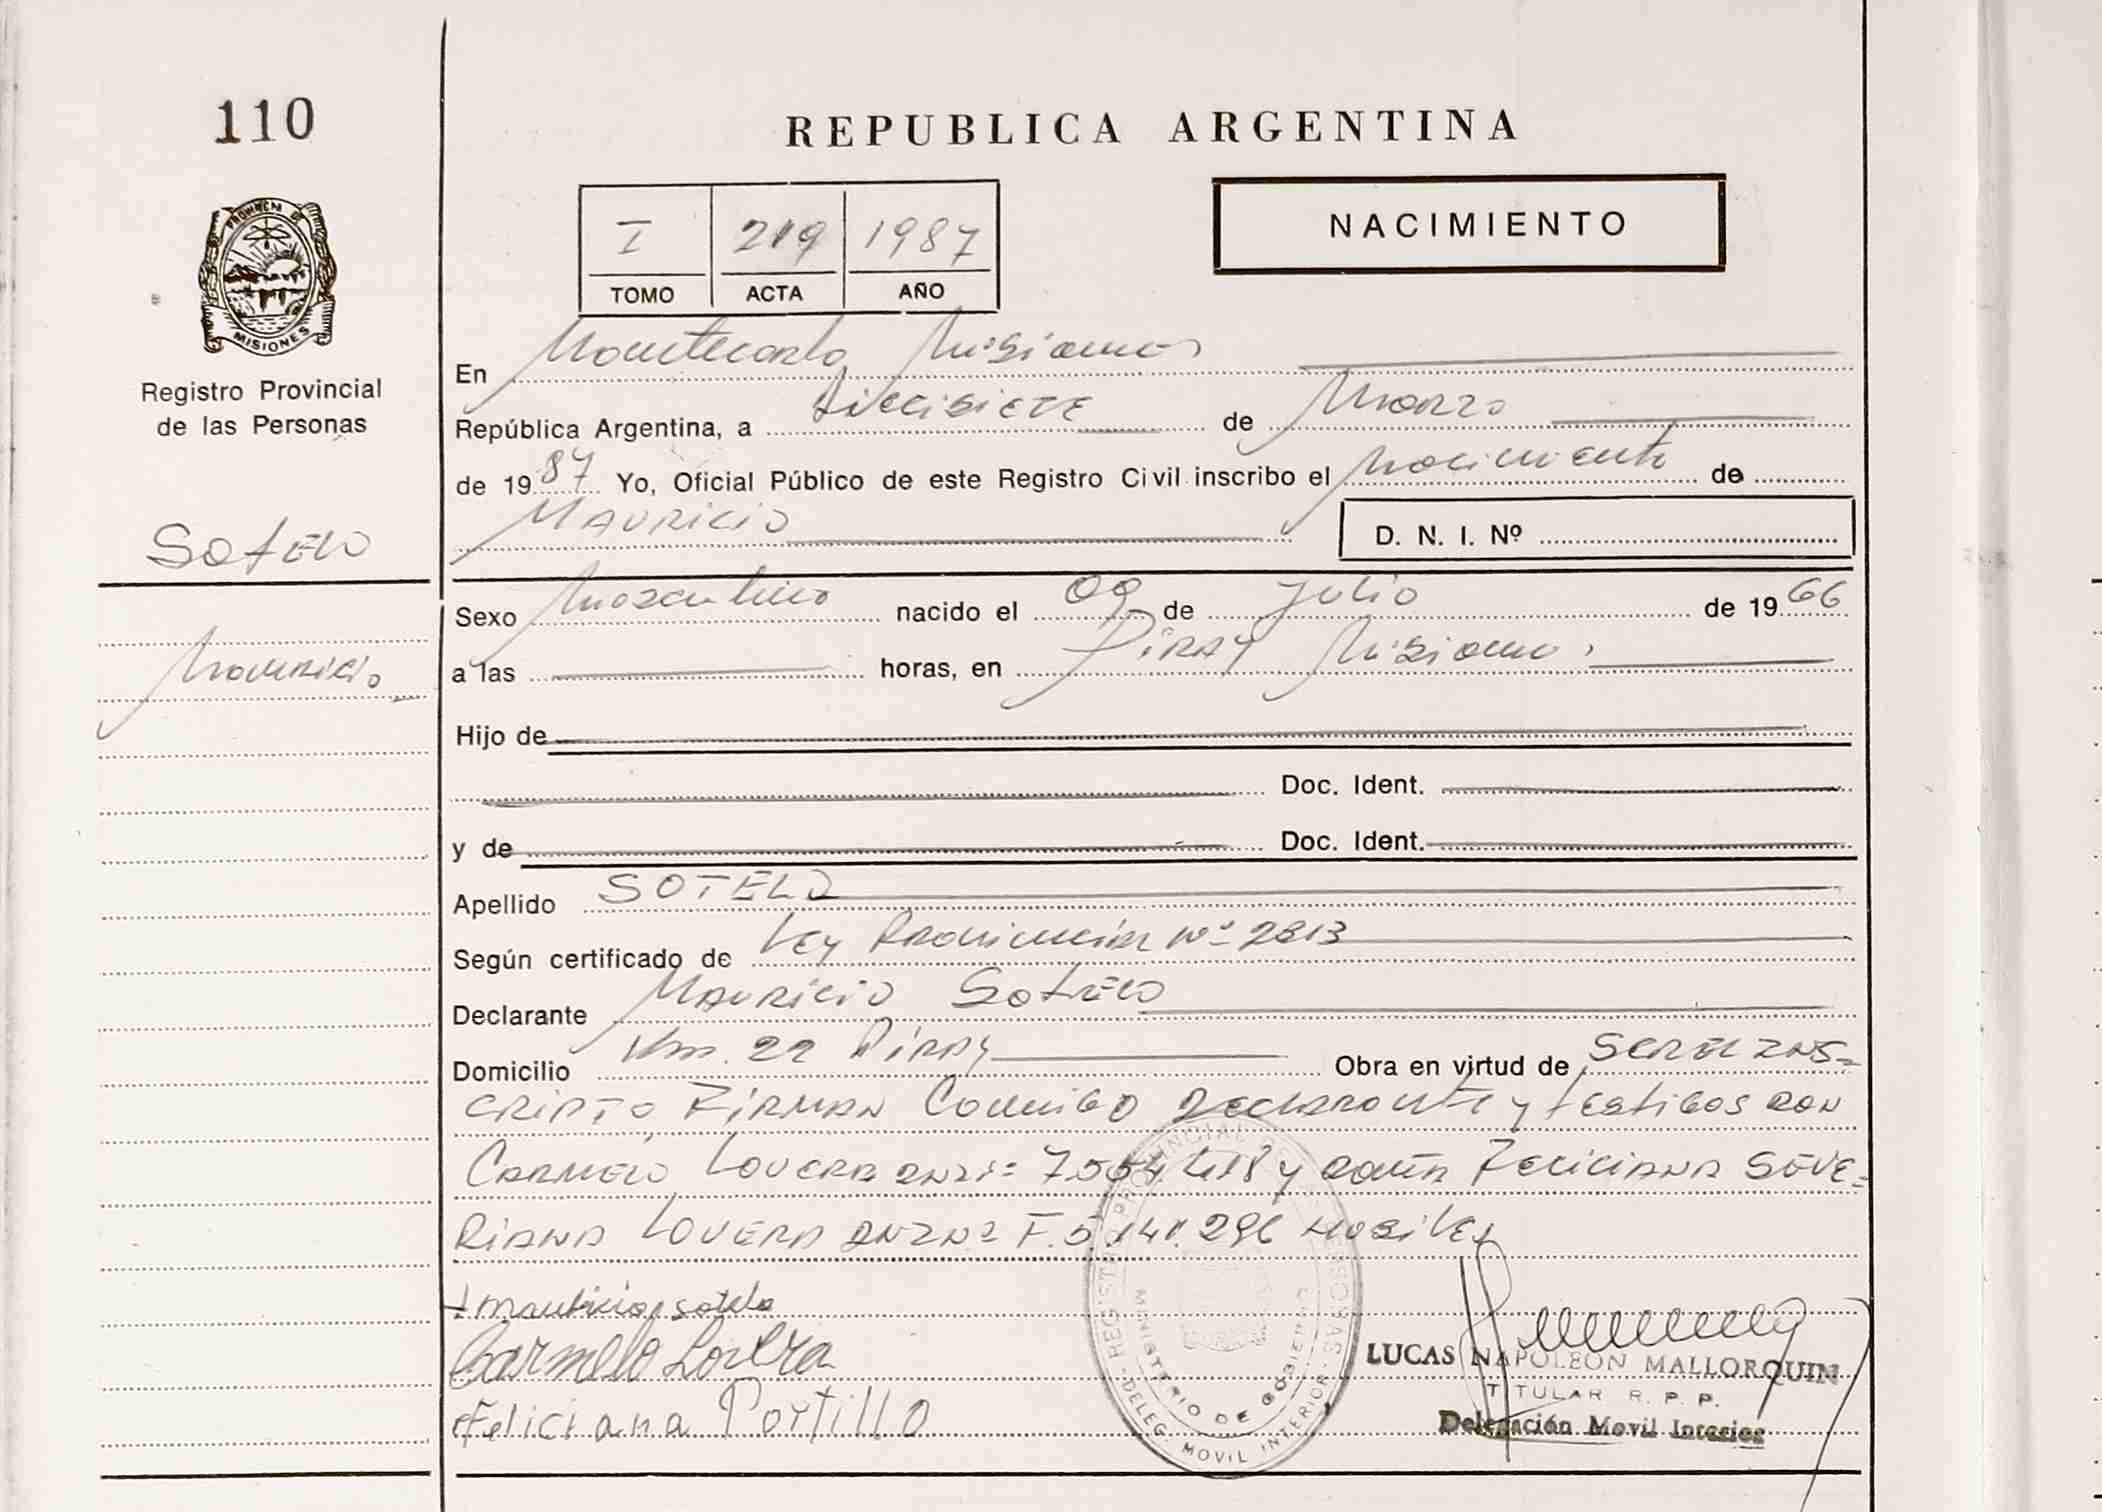 110
REPUBLICA ARGENTINA
PROVINCIA DE
MISIONES
Registro Provincial
de las Personas
I 219 1987
TOMO ACTA AÑO
NACIMIENTO
En Montecarlo Misiones
República Argentina, a diecisiete de Marzo
de 1987 Yo, Oficial Público de este Registro Civil inscribo el Nacimiento de
Mauricio
D. N. I. Nº
Sotelo
Mauricio
Sexo Masculino nacido el 09 de Julio de 1966
a las horas, en Piray Misiones.
Hijo de
Doc. Ident.
y de Doc. Ident.
Apellido SOTELO
Según certificado de Ley Provincial Nº 2813
Declarante Mauricio Sotelo
Domicilio Km. 22 Piray Obra en virtud de ser el ins=
cripto Firman Conmigo Declarante y testigos don
Carmelo Lovera DNI: 7.554.418 y doña Feliciana Seve=
riana Lovera DNI Nº F.5.141.296
Mauricio sotelo
Carmelo Lovera
Feliciana Portillo
REGISTRO PROVINCIAL DE LAS PERSONAS
MINISTERIO DE GOBIERNO
DELEG. MOVIL INTERIOR
LUCAS NAPOLEON MALLORQUIN
TITULAR R. P. P.
Delegación Movil Interior